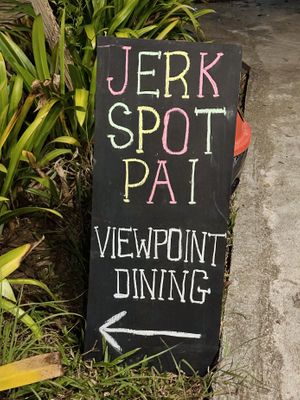 JERK
SPOT
PAI
VIEWPOINT
DINING